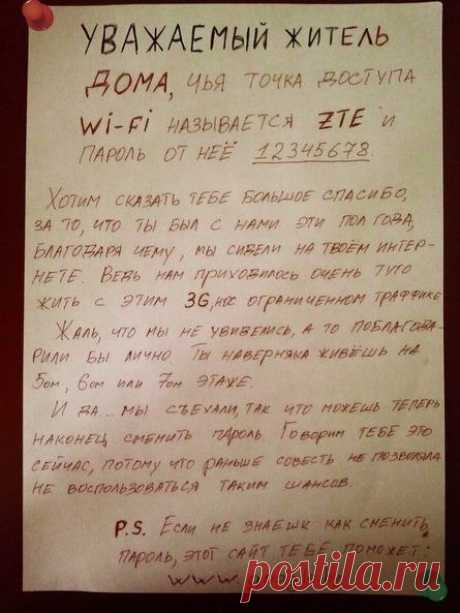 УВАЖАЕМЫЙ ЖИТЕЛЬ
ДОМА, ЧЬЯ ТОЧКА ДОСТУПА
Wi-Fi НАЗЫВАЕТСЯ ZTE И
ПАРОЛЬ ОТ НЕЁ 12345678.
ХОТИМ СКАЗАТЬ ТЕБЕ БОЛЬШОЕ СПАСИБО,
ЗА ТО, ЧТО ТЫ БЫЛ С НАМИ ЭТИ ПОЛ ГОДА,
БЛАГОДАРЯ ЧЕМУ, МЫ СИДЕЛИ НА ТВОЁМ ИНТЕР-
НЕТЕ. ВЕДЬ НАМ ПРИХОДИЛОСЬ ОЧЕНЬ ТУГО
ЖИТЬ С ЭТИМ 3G, ОГРАНИЧЕННОМ ТРАФФИКЕ
ЖАЛЬ, ЧТО МЫ НЕ УВИДЕЛИСЬ, А ТО ПОБЛАГОДА-
РИЛИ БЫ ЛИЧНО. ТЫ НАВЕРНЯКА ЖИВЁШЬ НА
5ом, 6ом ИЛИ 7ом ЭТАЖЕ.
И ДА... МЫ СЪЕХАЛИ, ТАК ЧТО МОЖЕШЬ ТЕПЕРЬ
НАКОНЕЦ СМЕНИТЬ ПАРОЛЬ. ГОВОРИМ ТЕБЕ ЭТО
СЕЙЧАС, ПОТОМУ ЧТО РАНЬШЕ СОВЕСТЬ НЕ ПОЗВОЛЯЛА
НЕ ВОСПОЛЬЗОВАТЬСЯ ТАКИМ ШАНСОМ.
P.S. ЕСЛИ НЕ ЗНАЕШЬ КАК СМЕНИТЬ
ПАРОЛЬ, ЭТОТ САЙТ ТЕБЕ ПОМОЖЕТ:
www.
postila.ru